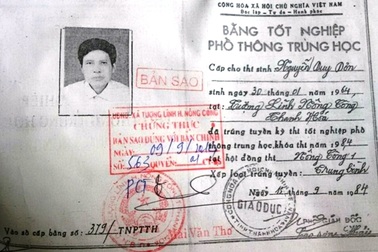 CỘNG HÒA XÃ HỘI CHỦ NGHĨA VIỆT NAM
Độc lập - Tự do - Hạnh phúc
BẰNG TỐT NGHIỆP
PHỔ THÔNG TRUNG HỌC
Cấp cho thí sinh Nguyễn Duy Dôn
sinh ngày 30 tháng 01 năm 1964
tại Tường Lĩnh Nông Cống
Thanh Hóa
đã trúng tuyển kỳ thi tốt nghiệp phổ
thông trung học, khóa thi 1984
tại hội đồng thi Nông Cống 1
Xếp loại trúng tuyển: Trung bình
Ngày 15 tháng 9 năm 1984
GIÁM ĐỐC
GIÁO DỤC
BẢN SAO
UBND XÃ TƯỢNG LĨNH H. NÔNG CỐNG
CHỨNG THỰC
BẢN SAO ĐÚNG VỚI BẢN CHÍNH
NGÀY: 09/9/
SỐ: 563 QUYỂN: 01
PCT
Mai Văn Thơ
Vào sổ cấp bằng số: 379/TNPTTH